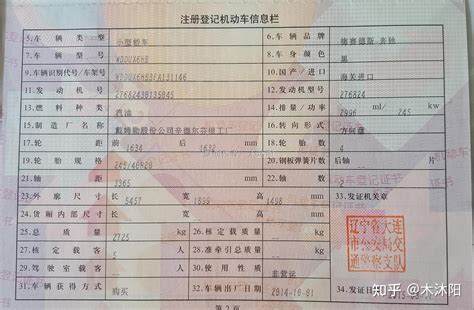 注册登记机动车信息栏
5.车辆类型 小型轿车 6.车辆品牌 梅赛德斯-奔驰
7.车辆型号 WDDUX6HB 8.车身颜色 黑
9.车辆识别代号/车架号 10.国产/进口 海关进口
11.发动机号 12.发动机型号 276824
13.燃料种类 汽油 14.排量/功率 2996 ml/ 245 kw
15.制造厂名称 戴姆勒股份公司辛德尔芬根工厂 16.转向形式 方向盘
17.轮距 前 1634 后 1632 mm 18.轮胎数 4
19.轮胎规格 245/45R20 20.钢板弹簧片数 后轴 片
21.轴距 3365 mm 22.轴数 2
23.外廓尺寸 长 5457 宽 1899 高 1498 mm 33.发证机关章
24.货厢内部尺寸 长 宽 高 mm
25.总质量 2725 kg 26.核定载质量 kg
27.核定载客 5 人 28.准牵引总质量 kg
29.驾驶室载客 人 30.使用性质 非营运
31.车辆获得方式 购买 32.车辆出厂日期 2014-10-01 34.发证日期
辽宁省大连
市公安局交
通警察支队
第2页
知乎 @木沐阳